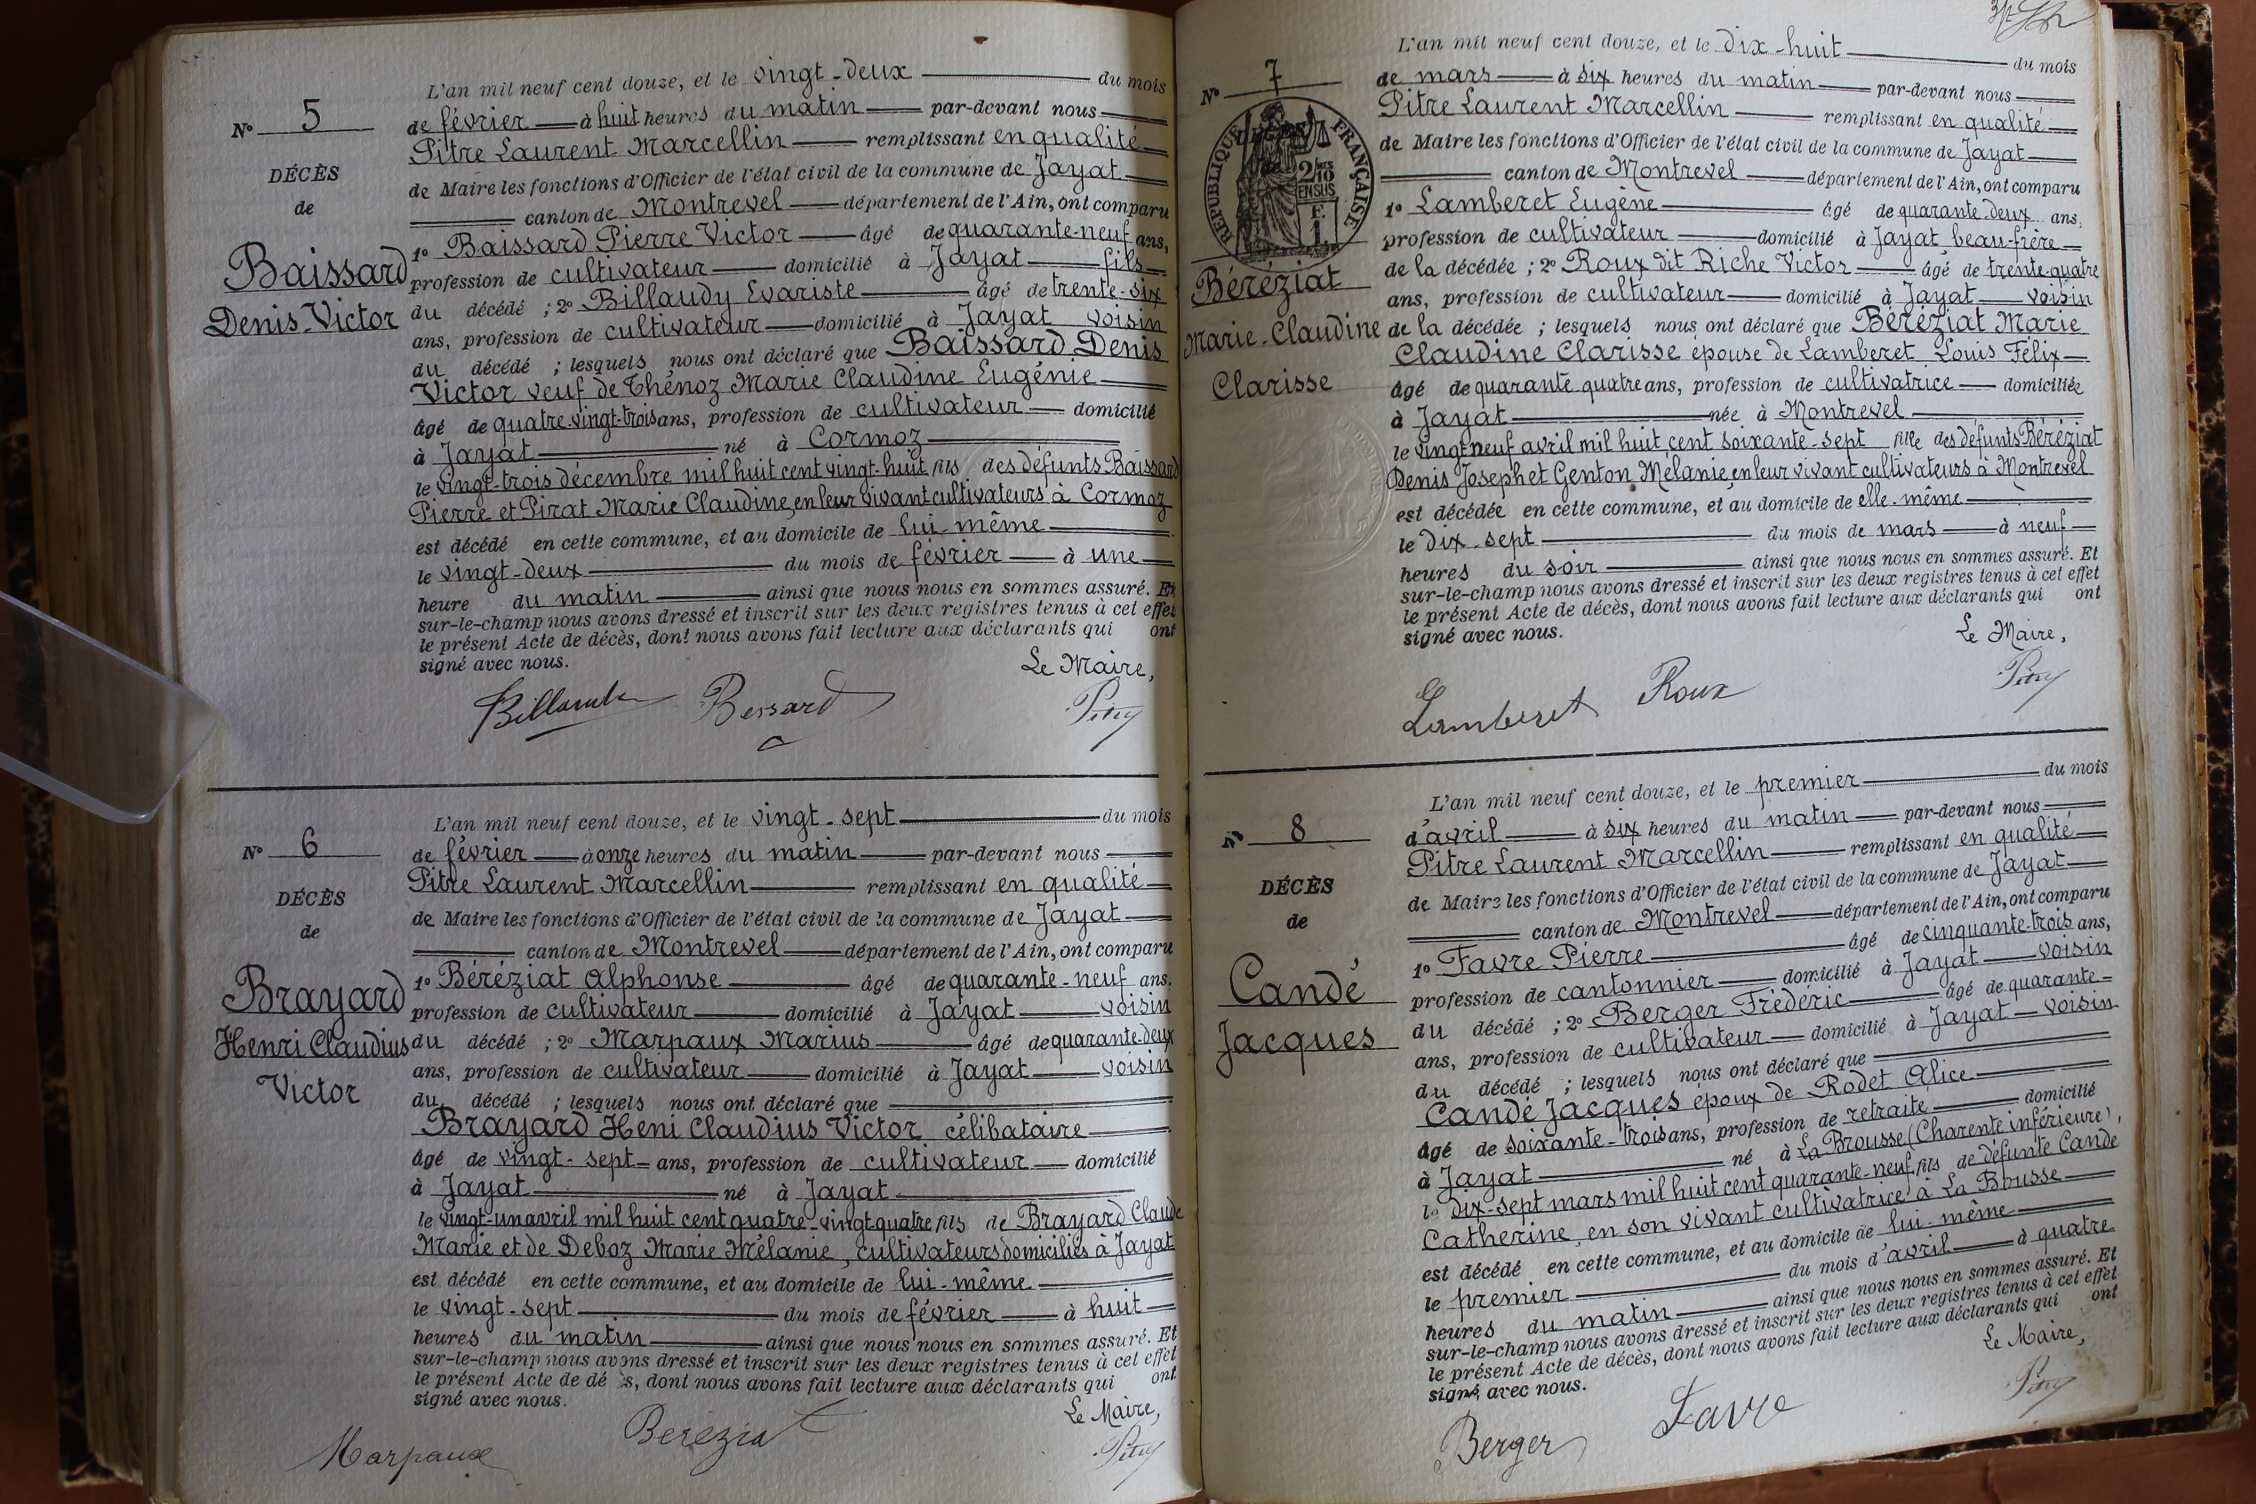 N° 5
DÉCÈS
de
Baissard
Denis-Victor
L'an mil neuf cent douze, et le vingt-deux du mois
de février à huit heures du matin par-devant nous
Pitre Laurent Marcellin remplissant en qualité
de Maire les fonctions d'Officier de l'état civil de la commune de Jayat
canton de Montrevel département de l'Ain, ont comparu
1° Baissard Pierre Victor âgé de quarante-neuf ans,
profession de cultivateur domicilié à Jayat fils
du décédé ; 2° Billaudy Evariste âgé de trente-six
ans, profession de cultivateur domicilié à Jayat voisin
du décédé ; lesquels nous ont déclaré que Baissard Denis
Victor veuf de Thénoz Marie Claudine Eugénie
âgé de quatre-vingt-trois ans, profession de cultivateur domicilié
à Jayat né à Cormoz
le vingt-trois décembre mil huit cent vingt-huit fils des défunts Baissard
Pierre et Pirat Marie Claudine, en leur vivant cultivateurs à Cormoz
est décédé en cette commune, et au domicile de lui-même
le vingt-deux du mois de février à une
heure du matin ainsi que nous nous en sommes assuré. Et
sur-le-champ nous avons dressé et inscrit sur les deux registres tenus à cet effet
le présent Acte de décès, dont nous avons fait lecture aux déclarants qui ont
signé avec nous.
Le Maire,
Bessard
N° 6
DÉCÈS
de
Brayard
Henri Claudius
Victor
L'an mil neuf cent douze, et le vingt-sept du mois
de février à onze heures du matin par-devant nous
Pitre Laurent Marcellin remplissant en qualité
de Maire les fonctions d'Officier de l'état civil de la commune de Jayat
canton de Montrevel département de l'Ain, ont comparu
1° Béréziat Alphonse âgé de quarante-neuf ans,
profession de cultivateur domicilié à Jayat voisin
du décédé ; 2° Marpaux Marius âgé de quarante-deux
ans, profession de cultivateur domicilié à Jayat voisin
du décédé ; lesquels nous ont déclaré que
Brayard Heni Claudius Victor célibataire
âgé de vingt-sept ans, profession de cultivateur domicilié
à Jayat né à Jayat
le vingt-un avril mil huit cent quatre-vingt-quatre fils de Brayard Claude
Marie et de Deboz Marie Mélanie, cultivateurs domiciliés à Jayat
est décédé en cette commune, et au domicile de lui-même
le vingt-sept du mois de février à huit
heures du matin ainsi que nous nous en sommes assuré. Et
sur-le-champ nous avons dressé et inscrit sur les deux registres tenus à cet effet
le présent Acte de dé s, dont nous avons fait lecture aux déclarants qui ont
signé avec nous.
Le Maire,
Marpaux Béréziat
N° 7
REPUBLIQUE FRANÇAISE
2/10 EN SUS
Béréziat
Marie-Claudine
Clarisse
L'an mil neuf cent douze, et le dix-huit du mois
de mars à six heures du matin par-devant nous
Pitre Laurent Marcellin remplissant en qualité
de Maire les fonctions d'Officier de l'état civil de la commune de Jayat
canton de Montrevel département de l'Ain, ont comparu
1° Lamberet Eugène âgé de quarante-deux ans,
profession de cultivateur domicilié à Jayat beau-frère
de la décédée ; 2° Roux dit Riche Victor âgé de trente-quatre
ans, profession de cultivateur domicilié à Jayat voisin
de la décédée ; lesquels nous ont déclaré que Béréziat Marie
Claudine Clarisse épouse de Lamberet Louis Félix
âgé de quarante quatre ans, profession de cultivatrice domiciliée
à Jayat née à Montrevel
le vingt neuf avril mil huit cent soixante-sept fille des défunts Béréziat
Denis Joseph et Genton Mélanie, en leur vivant cultivateurs à Montrevel
est décédée en cette commune, et au domicile de elle-même
le dix-sept du mois de mars à neuf
heures du soir ainsi que nous nous en sommes assuré. Et
sur-le-champ nous avons dressé et inscrit sur les deux registres tenus à cet effet
le présent Acte de décès, dont nous avons fait lecture aux déclarants qui ont
signé avec nous.
Le Maire,
Lamberet Roux
N° 8
DÉCÈS
de
Candé
Jacques
L'an mil neuf cent douze, et le premier du mois
d'avril à six heures du matin par-devant nous
Pitre Laurent Marcellin remplissant en qualité
de Maire les fonctions d'Officier de l'état civil de la commune de Jayat
canton de Montrevel département de l'Ain, ont comparu
1° Favre Pierre âgé de cinquante-trois ans,
profession de cantonnier domicilié à Jayat voisin
du décédé ; 2° Berger Fréderic âgé de quarante
ans, profession de cultivateur domicilié à Jayat voisin
du décédé ; lesquels nous ont déclaré que
Candé Jacques époux de Rodet Alice
âgé de soixante-trois ans, profession de retraité domicilié
à Jayat né à La Brousse (Charente inférieure),
le dix-sept mars mil huit cent quarante-neuf fils de défunte Candé
Catherine, en son vivant cultivatrice à La Brousse
est décédé en cette commune, et au domicile de lui-même
le premier du mois d'avril à quatre
heures du matin ainsi que nous nous en sommes assuré. Et
sur-le-champ nous avons dressé et inscrit sur les deux registres tenus à cet effet
le présent Acte de décès, dont nous avons fait lecture aux déclarants qui ont
signé avec nous.
Le Maire,
Berger Favre